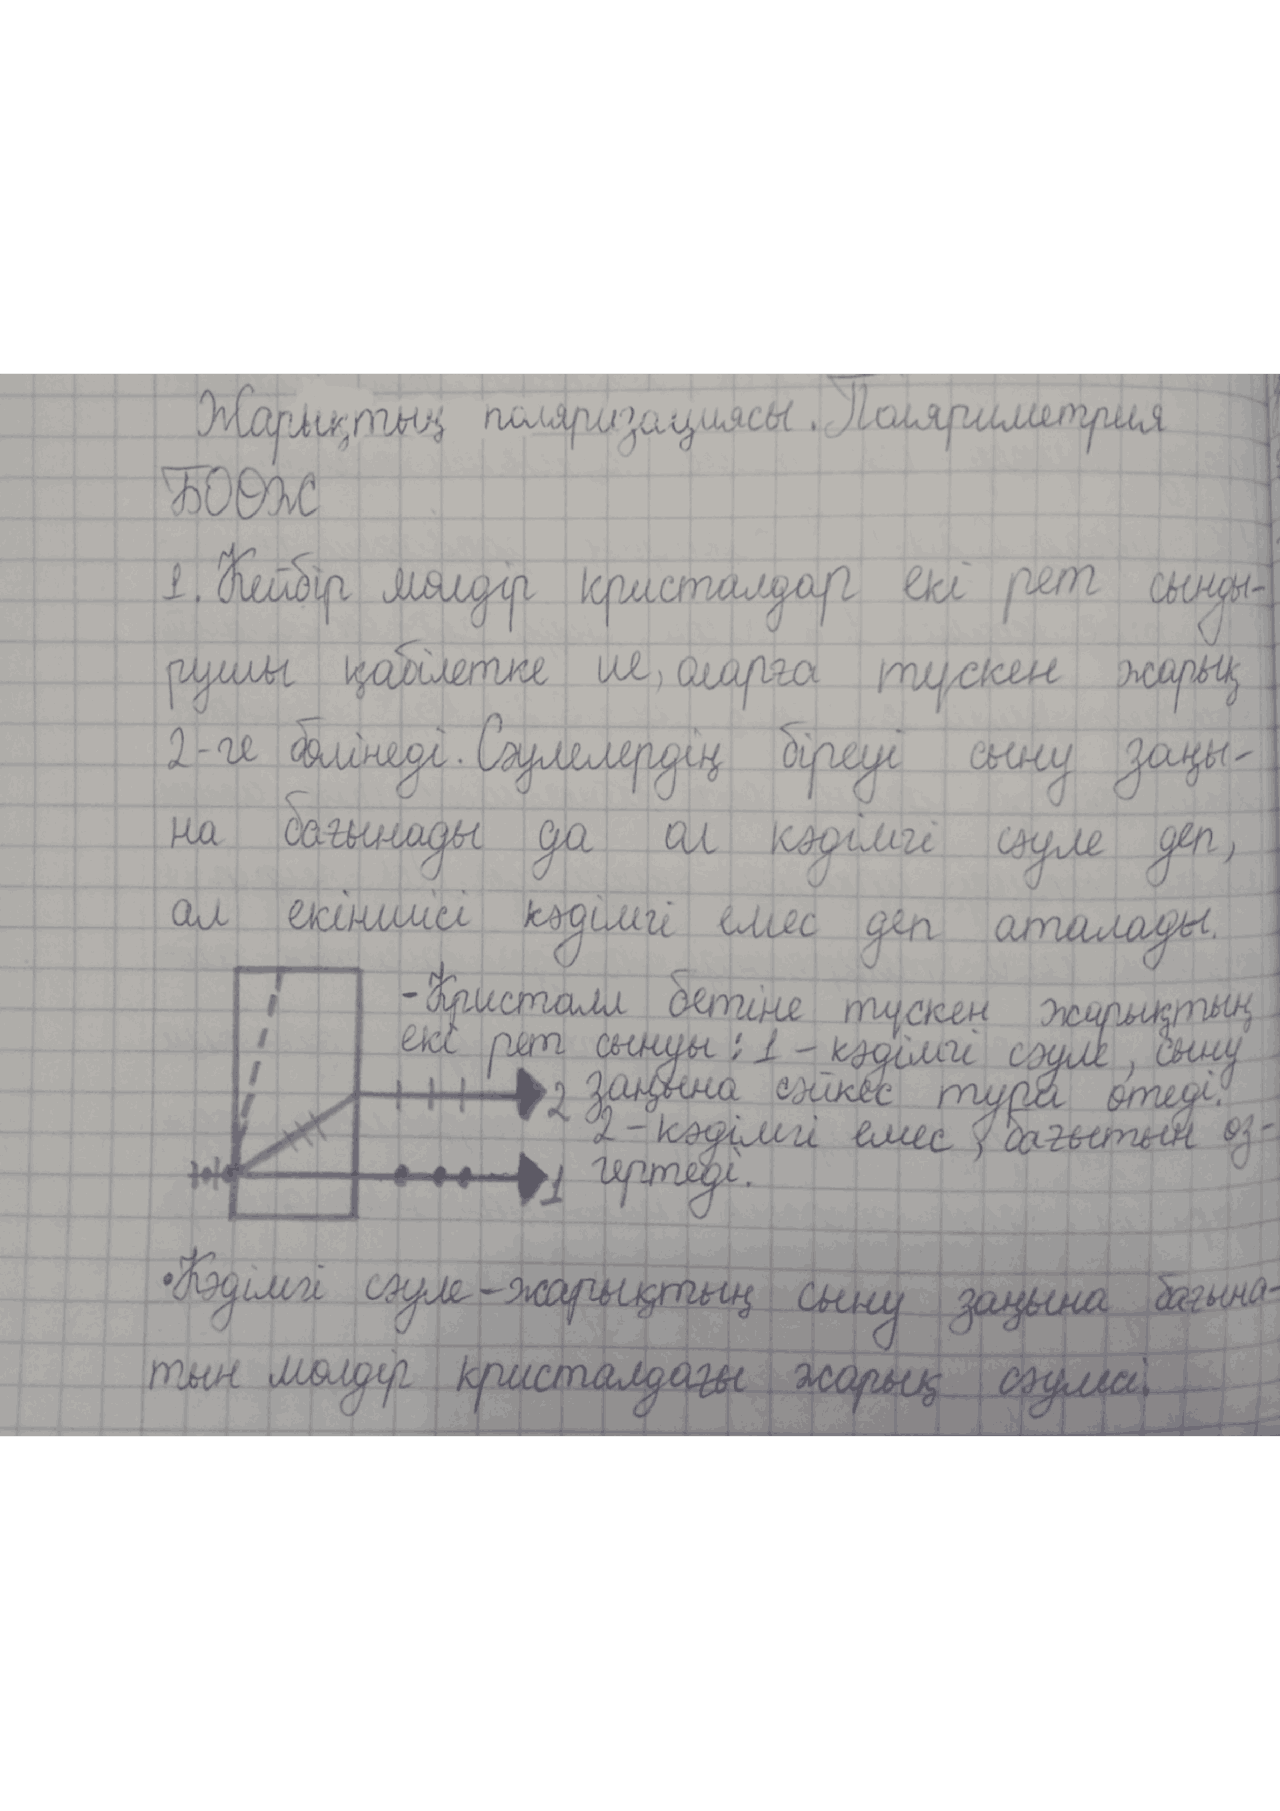 Жарықтың поляризациясы. Поляриметрия
БООЖ
1. Кейбір мөлдір кристалдар екі рет сынды-
рушы қабілетке ие, оларға түскен жарық
2-ге бөлінеді. Сәулелердің біреуі сыну заңы-
на бағынады да ол кәдімгі сәуле деп,
ал екіншісі кәдімгі емес деп аталады.
- Кристалл бетіне түскен жарықтың
екі рет сынуы: 1 - кәдімгі сәуле, сыну
заңына сәйкес тура өтеді.
2
2 - кәдімгі емес, бағытын өз-
гертеді.
1
• Кәдімгі сәуле - жарықтың сыну заңына бағына-
тын мөлдір кристалдағы жарық сәулесі.